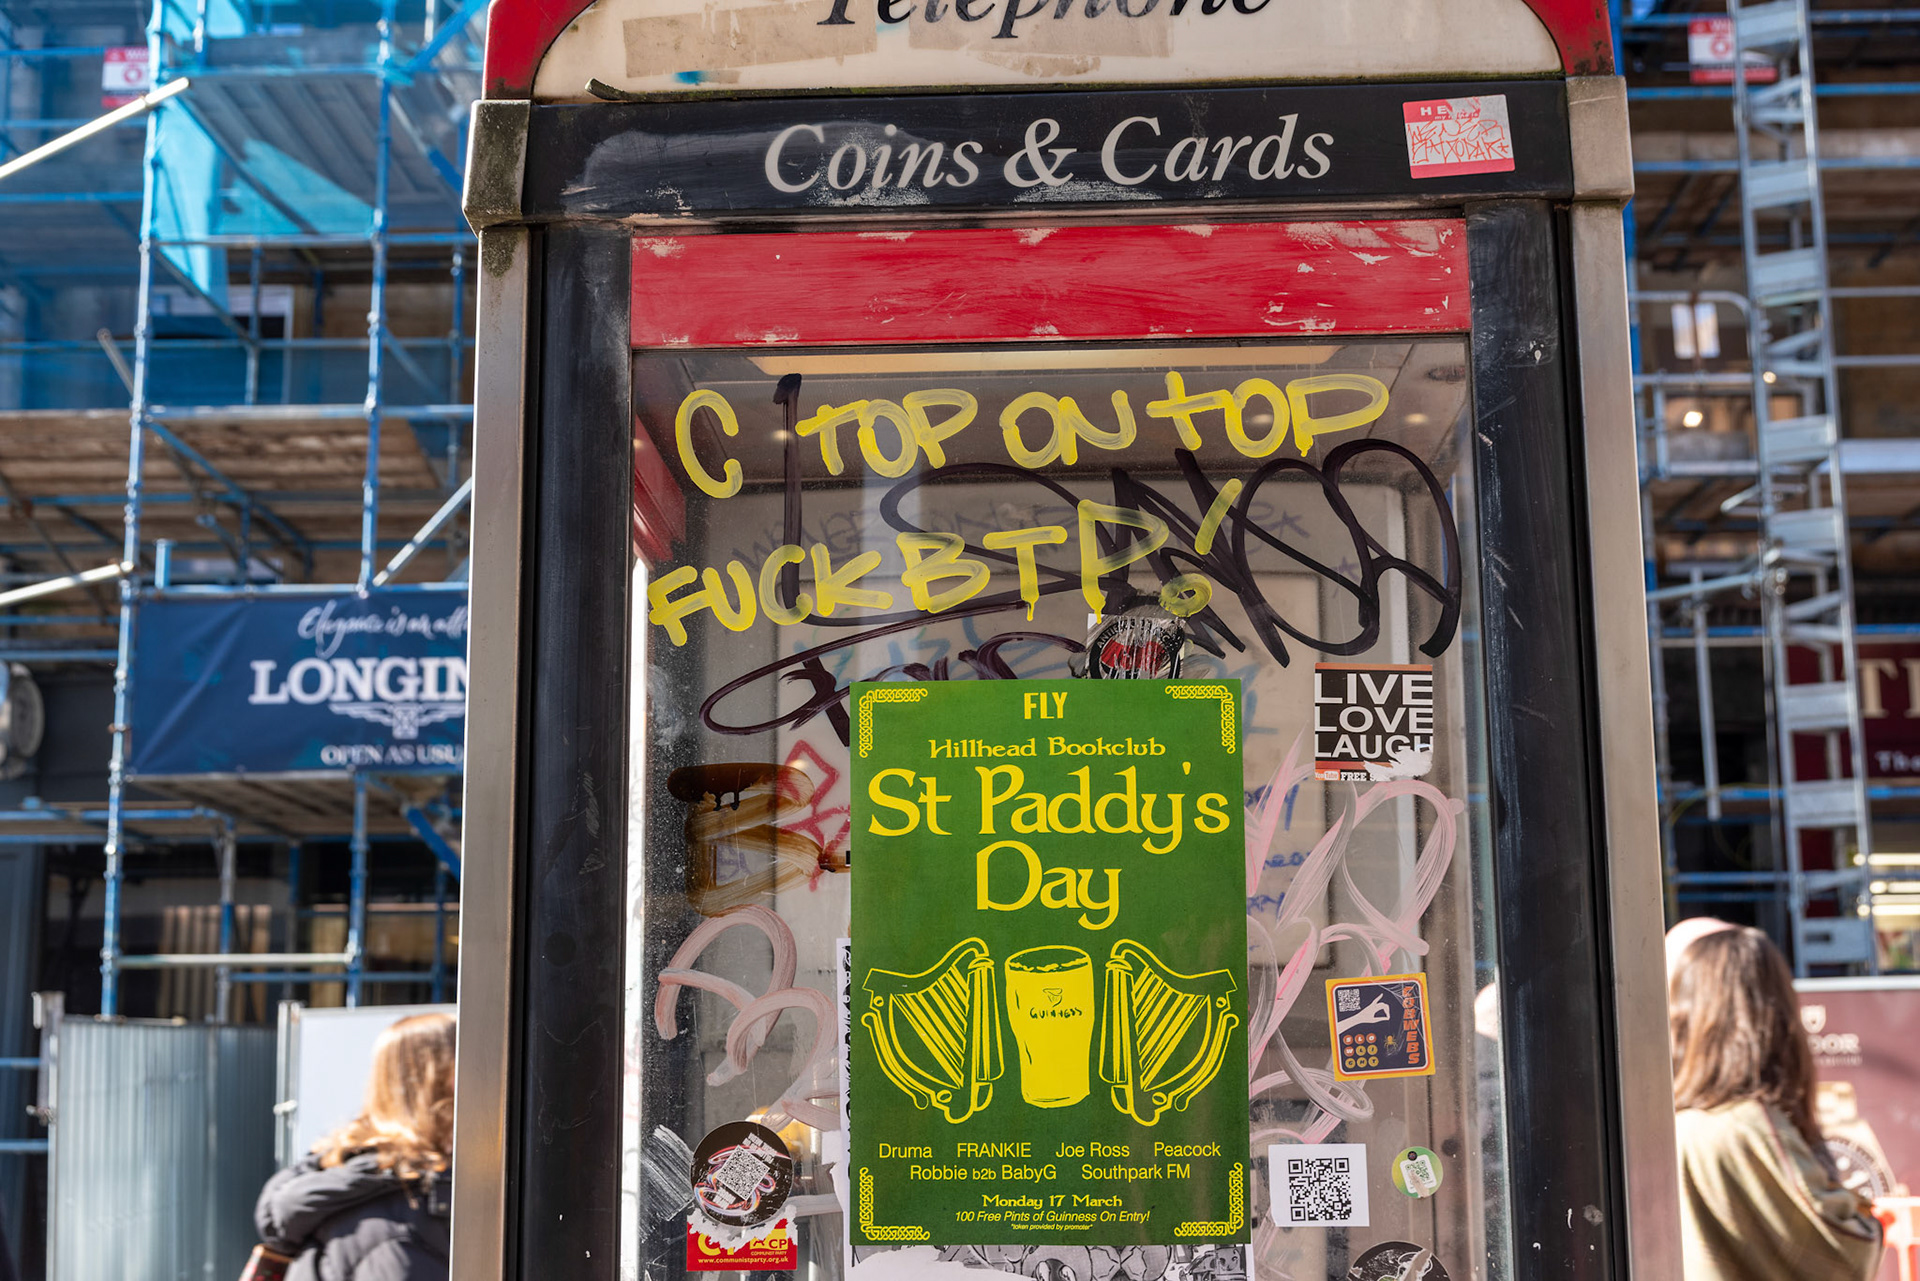 Telephone
Coins & Cards
C TOP ON TOP
FUCK BTP!
LONGIN
OPEN AS USU
LIVE
LOVE
LAUGH
FREE
FLY
Hillhead Bookclub
St Paddy's
Day
GUINNESS
Druma FRANKIE Joe Ross Peacock
Robbie b2b BabyG Southpark FM
Monday 17 March
100 Free Pints of Guinness On Entry!
*token provided by promoter*
COBWEBS
CP
COMMUNIST PARTY
www.communistparty.org.uk